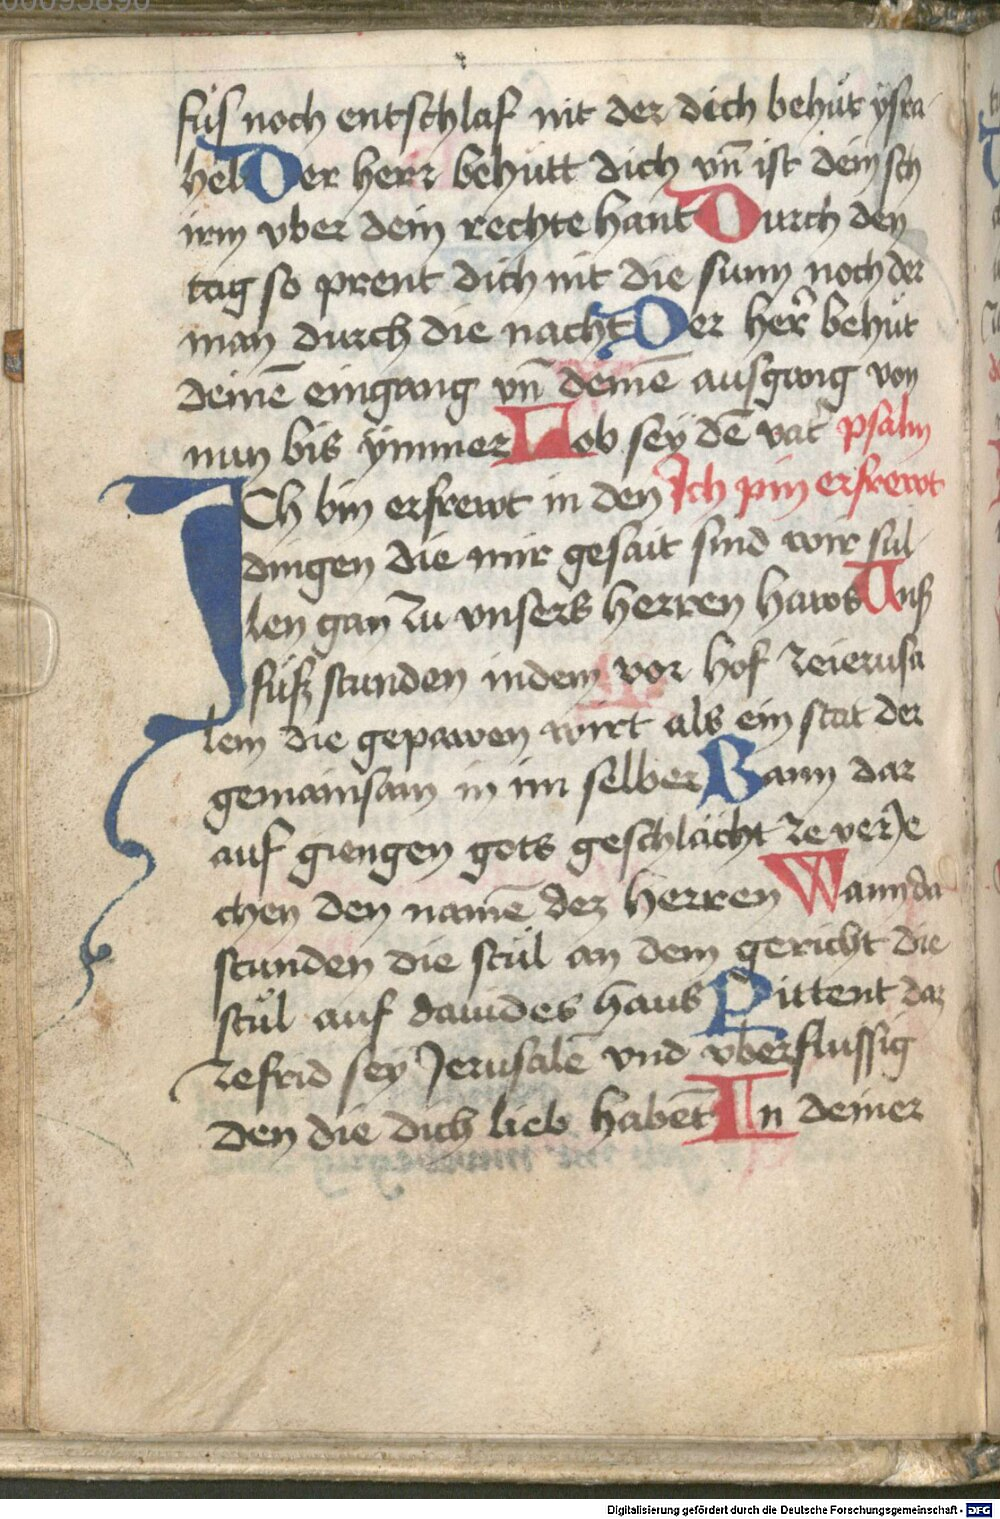 00093890
fuͤs noch entschlaf nit der dich behuͤt ysra
hel Der herr behuͤtt dich vn̄ ist dein sch
irm vber dein rechte hant Durch den
tag so prent dich nit die sunn noch der
man durch die nacht Der her̄ behuͤt
deinē eingang vn̄ deinē ausgang von
nun bis ymmer Lob sey dē vat̾ psalm
ICh bin erfrewt in den Ich pin erfrewt
dingen die mir gesait sind wir sul
len gan zu vnsers herren haws Vnß
fuͤß stunden in dem vor hof zeierusa
lem die gepawen wirt als ein stat der
gemainsam in im selber Wann dar
auf giengen gots geschlächt ze verje
chen den namē dez herren Wann da
stunden die stuͤl an dem gericht die
stuͤl auf dauides haus Pittent daz
zefrid sey Jerusalē vnd vberflussig
den die dich lieb habēt In deiner
Digitalisierung gefördert durch die Deutsche Forschungsgemeinschaft - DFG